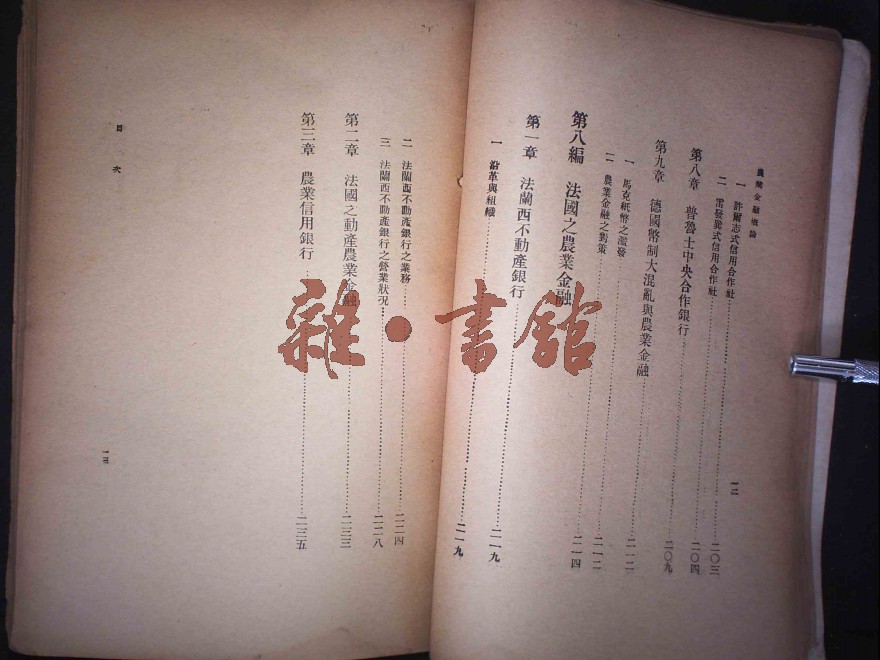 農業金融概論
一二
一 許爾志式信用合作社……二〇三
二 雷發巽式信用合作社……二〇四
第八章 普魯士中央合作銀行……二〇九
第九章 德國幣制大混亂與農業金融……二一二
一 馬克紙幣之濫發……二一二
二 農業金融之對策……二一四
第八編 法國之農業金融
第一章 法蘭西不動產銀行……二一九
一 沿革與組織……二一九
二 法蘭西不動產銀行之業務……二二四
三 法蘭西不動產銀行之營業狀况……二二八
第二章 法國之動產農業金融……二三三
第三章 農業信用銀行……二三五
目次
一三
雜·書館